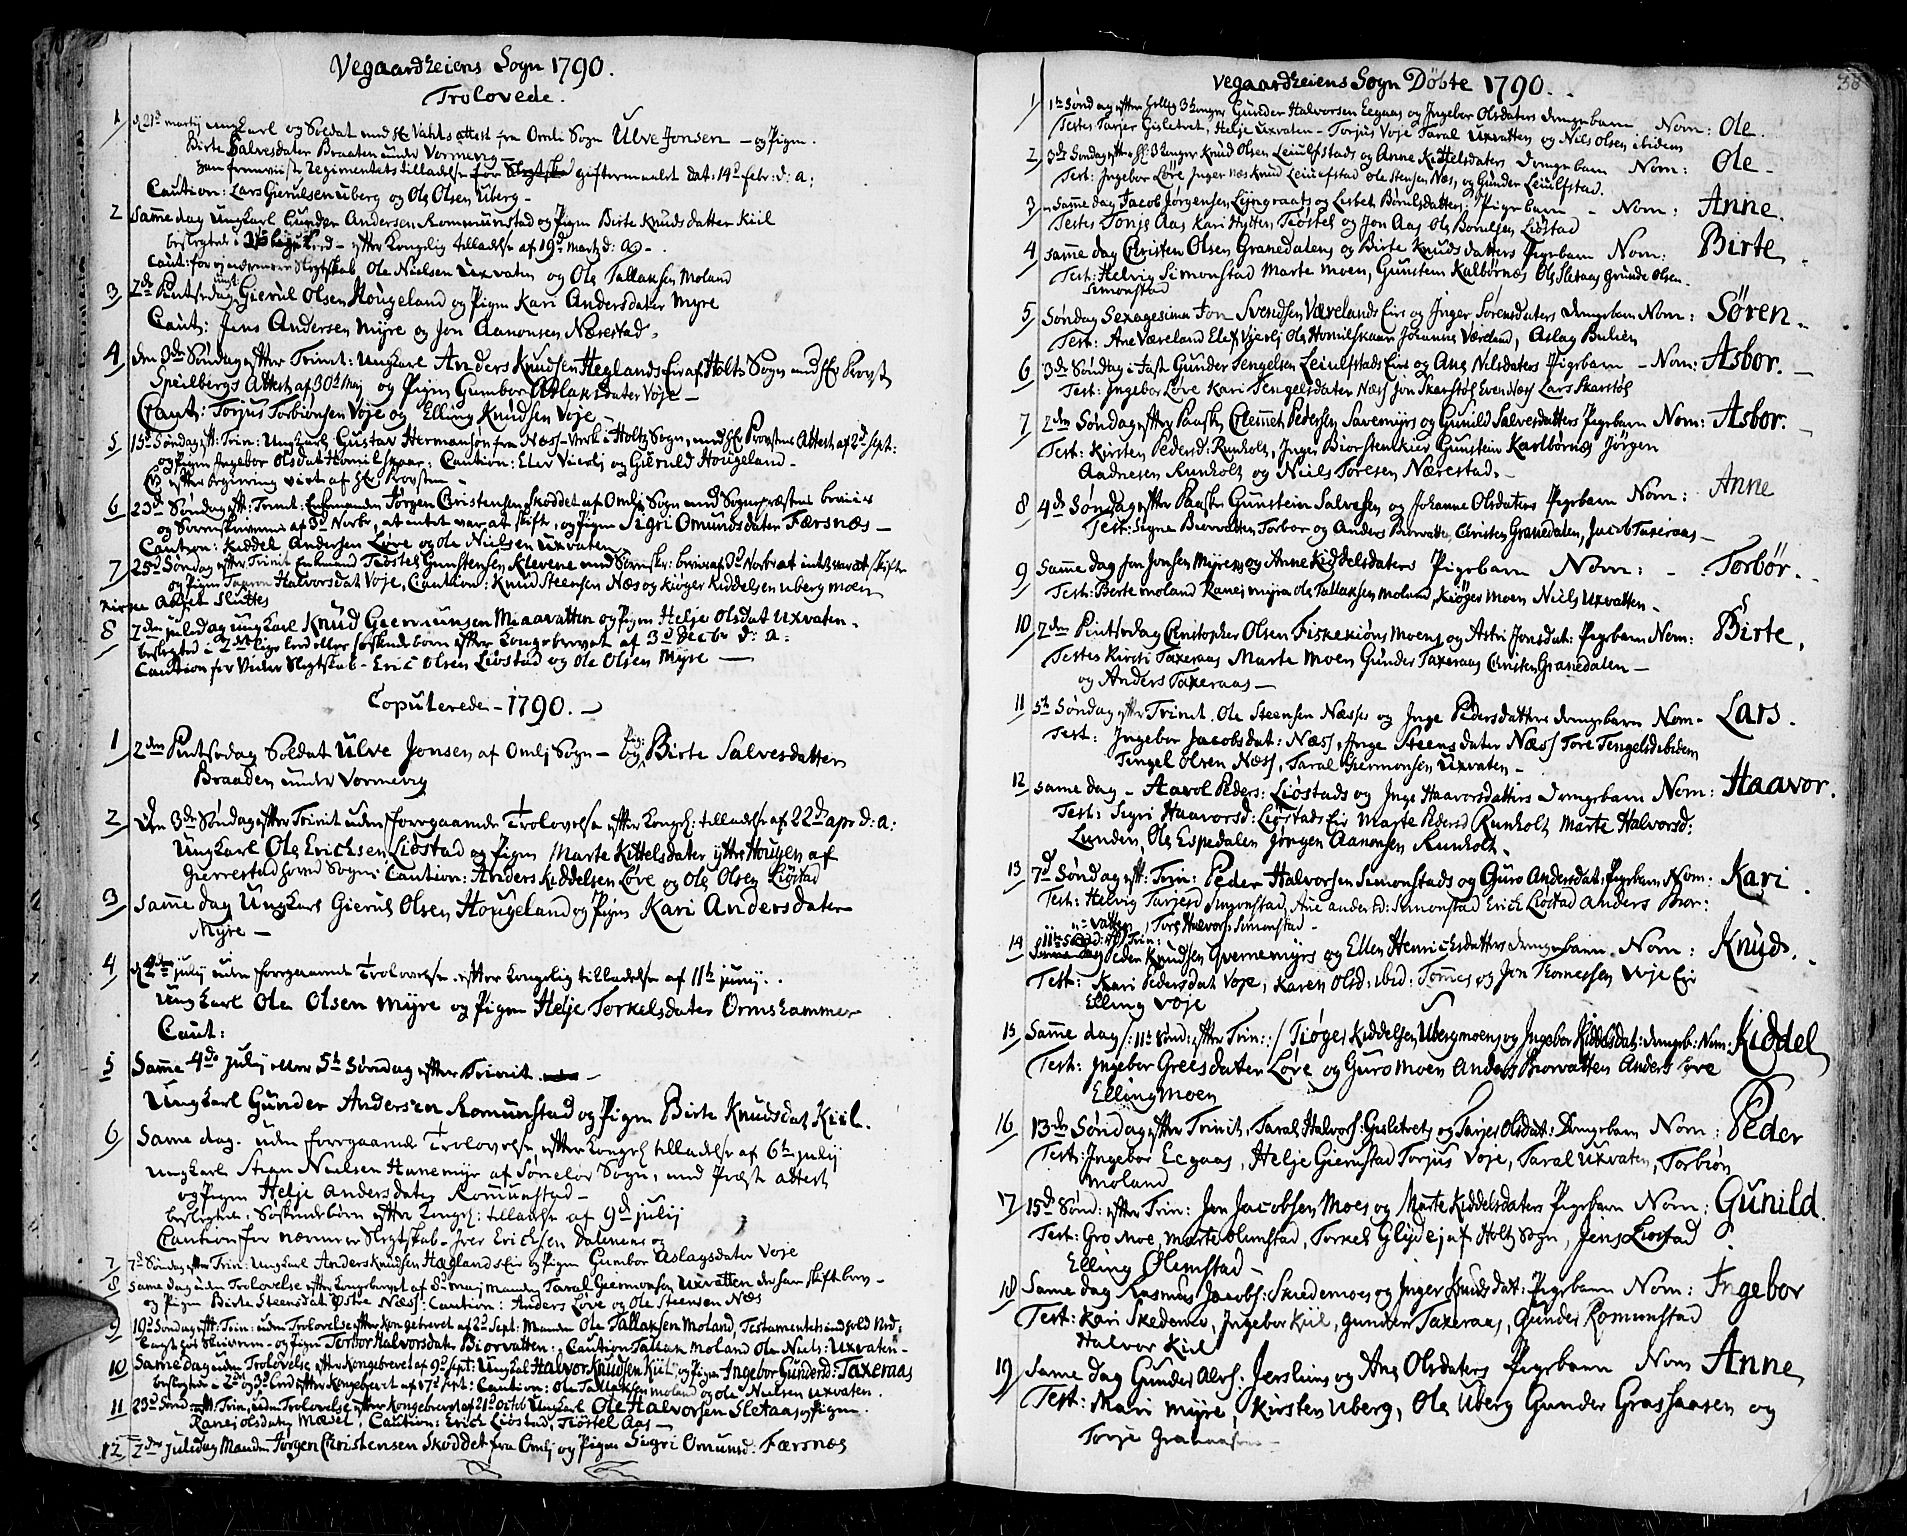 Vegaardheiens Sogn 1790.
Trolovede.
1 d. 21de martij ungkarl og Soldat med Hr Vahls attest fra Omli Sogn Ulve Jonsen – og Pigen
Birte Salvesdater Braaten under Vormevig –
giftermaalet dat: 14d febr: d: a:
Caution: Lars Gierulsen uberg og Ole Olsen Uberg –
2 Samme dag Ungkarl Gunder Andersen Rommunstad og Pigen Birte Knudsdatter Kiil
beslegtet i Leed – efter kongelig tilladelse af 19d martij d: a –
Caut: for nærmere Slegtskab Ole Nielsen Uxvaten og Ole Tallaksen Moland
3 2den Pintsedag Gierul Olsen Hougeland og Pigen Kari Andersdater Myre
Caut: Jens Andersen Myre og Jon Aanonsen Nærestad.
4 den 3de Søndag efter Trinit: Ungkarl Anders Knudsen Heglands Eie af Holts Sogn med Hr Provst
Speilbergs Attest af 30te Maj og Pigen Gumbor Aslaksdater Voje –
Caut: Torjus Torbiønsen Voje og Elling Knudsen Voje –
5 15d Søndag eft: Trin: Ungkarl Gustav Hermansøn fra Næss-Verk i Holts Sogn, med Hr Provstens Attest af 2d Sept:
og Pigen Ingebor Olsdat Homilskaar: Caution: Elev Vierli og Gieruld Hougeland –
efter begiering viet af Hr Provsten –
6 23de Søndag eft: Trinit: Enkemanden Jørgen Christensen Skoddet af Omli Sogn med Sognepræstens beviis
og Sorenskriverens af 3d Novbr, at intet var at skifte, og Pigen Sigri Omundsdater Færsnæs –
Caution: Kiddel Andersen Løve og Ole Nielsen Uxvaten
7 25de Søndag efter Trinit Enkmand Tiøstel Gunstensen Klevene med Sorenskr: beviis af 9d Novbr at intet var at skifte
og Pigen Taaran Halvorsdat Voje, Caution: Knud Steensen Næs og Kiøger Kiddelsen ubergmoen
Kirke Aaret Sluttes
8 2den juledag ungkarl Knud Giermunsen Miaavatten og Pigen Helje Olsdat Uxvaten –
beslegted i 2det lige Leed eller Søskendebørn efter Kongebrevet af 3d Decbr d: a:
Caution for Vider Slegtskab – Eric Olsen Liøstad og Ole Olsen Myre –
Copulerede – 1790. –
1 2den Pintsedag Soldat Ulve Jonsen af Omli Sogn – og Pig: Birte Salvesdatter
Braaden under Vormevig
2 Den 3de Søndag efter Trinit uden forrgaaende Trolovelse efter Kongel: tilladelse af 22de apr d: a:
Ungkarl Ole Erichsen Liøstad og Pigen Marte Kittelsdater ytre Hougen af
Gierrestad hoved Sogn: Caution: Anders Kiddelsen Løve og Ole Olsen Liøstad
3 Samme dag Ungkarl Gierul Olsen Hougeland og Pigen Kari Andersdater
Myre –
4 d 4de julij uden forrgaaende Trolovelse efter kongelig tilladelse af 11te junij.
Ungkarl Ole Olsen Myre og Pigen Helje Torkelsdater Ormshammer
Caut:
5 Samme 4de Julij eller 5te Søndag efter Trinit –
Ungkarl Gunder Andersen Romunstad og Pigen Birte Knudsdat Kiil.
6 Same dag. uden forrgaaende Trolovelse, efter kongel tilladelse af 6te julij
Ungkarl Stian Nielsen Hanemyr af Søneløv Sogn, med Præst attest
og Pigen Helje Andersdater Romunstad –
beslegtede. Søskendebørn efter Kongel: tilladelse af 9d julij
Caution for nærmere Slegtskab – Iver Erichsen Dalnene og
7 7d Søndag efter Trin: Ungkarl Anders Knudsen Hæglands Eie og Pigen Gumbor Aslagsdater Voje
8 Same dag uden Trolovelse efter Kongebrevet af maj manden Taral Giermonsen Uxvatten der har skiftebrev –
og Pigen Birte Steensdat Østre Næss: Caution: Anders Løve og Ole Steensen Næs
9 19d Søndag eft: Trin: uden Trolovelse efter kongebrevet af 2d Sept: Manden Ole Tallaksen Moland, Testamentets indhold
og Pigen Torbor Halvorsdater Biorvatten: Caution Tallak Moland Ole Niels: Uxvaten –
10 Same dag uden Trolovelse efter Kongebrevet af 9d Sept: Ungkal Halvor Knudsen Kiil og Pigen Ingebor Gundersd: Taxeraas
beslegted i 2d og 3d Leed efter kongebrevet af 17d Sept: Caution: Ole Tallaksen moland og Ole Nielsen Uxvaten.
11 23de Sønd eft Trin: uden Trolovelse efter Kongebrevet af 21d Octob Ungkarl Ole Halvorsen Sletaas og Pigen
Ranej olsdater Mædel, Caution: Erich Liøstad, Tiøstel Aas –
12 2den juledag Manden Jørgen Christensen Skoddet fra Omli og Pigen Sigri Omunsd: Færsnæs
38
Vegaardheiens Sogn Døbte 1790.
1 1te Søndag efter hellig 3 konger Gunder Halvorsen Eegaas og Ingebor Olsdaters drengebarn Nom: Ole.
Testes Tarjer Gisletret, Helje Uxvaten – Torjus Voje Taral Uxvatten og Nils Olsen ibidem
2 3de Søndag efter H: 3 konger Knud Olsen Leiulfstads og Anne Kittelsdaters drengebarn Nom: Ole –
Test: Ingebor Løve Inger næs Knud Leiulfstad Ole Stensen Næs, og Gunder Leiulfstad.
3 Samme dag Jacob Jørgensen Lijngraats og Lisbet Borulsdatters Pigebarn – Nom: Anne.
Testes Tonje Aas Kari Hytten Tiøstel og Jon Aas Ole Borulsen Liøstad
4 Samme dag Christen Olsen Granedalens og Birte Knudsdatters Pigebarn Nom: Birte
Test: Helvig Simonstad Marte Moen, Gunsten Kalbørnes Ole Sletaas Grunde Olsen
Simonstad
5 Søndag Sexagesima Jon Svendsen Værelands Eie og Inger Sørensdaters drengebarn Nom: Søren –
Test: Ane Væreland Elef Vierli Ole Homilskaar Johannes Væreland, Aslag Bulien
6 3de Søndag i Fast Gunder Tengelsen Leiulfstads Eie og Ane Nilsdaters Pigebarn – Nom: Asbor. –
Test: Ingebor Løve Kari Tengelsdater Næss Jon Skarstøl Even Næss Lars Skarstøl
7 2den Søndag efter Paaske Clemmet Pedersen Savemyrs og Gunild Salvesdatters Pigebarn Nom: Asbor. –
Test: Kirsten Pedersd: Runholt, Inger Biorstenkier Gunstein Karlbørnes Jørgen
Aadnesen Runholt og Neils Toresen Nærestad –
8 4de Søndag efter Paaske Gunstein Salvesen og Johanne Olsdaters Pigebarn Nom: Anne
Test: Signe Biorvatten Torbor og Anders Biorvatten, Christen Granedalen, Jacob Taxeraas –
9 Same dag Jon Jonsen Myrens og Anne Kiddelsdaters Pigebarn Nom: – Torbør. –
Test: Berte moland Ranej myra Ole Tallaksen moland, Kiøger Moen Niels Uxvatten –
10 2den Pintsedag Christopher Olsen Fiskekiøns Moens og Astri Jonsdat: Pigebarn Nom: Birte.
Testes Kirsti Taxeraas Marte Moen Gunder Taxeraas Christen Granedalen –
og Anders Taxeraas –
11 5te Søndag efter Trinit. Ole Steensen Næsses og Inge Pedersdatters drengebarn Nom – Lars –
Test: Ingebor Jacobsdat: Næss, Inge Steensdater Næss Tore Tengelsd ibidem
Tengel Olsen Næss, Taral Giermonsen Uxvaten –
12 same dag – Aavol Peders: Liøstads og Inge Haavorsdatters Drengebarn Nom: Haavor.
Test: Sigri Haavorsd: Liøstads Eie Marte Pedersd Runholt Marte Halvorsd:
Lunden, Ole Espedalen Jørgen Aanonsen Runholt.
13 7d Søndag eft: Trin: Peder Halvorsen Simonstads og Guro Andersdat: Pigebarn Nom: Kari
Test: Helvig Tarjesd Simonstad, Ane andersd: Simonstad Erich Liøstad Anders Bior:
vatten, Tore Halvors: Simonstad –
14 11te Sønd: efter Trin: Peder Knudsen Gvernemyrs og Ellen Henricksdatters drengebarn. Nom: Knud.
Test: Kari Pedersdat Voje, Karen Olsd: ibid: Tommes og Jon Tommessen Voje Eie
Elling Voje
15 Samme dag /: 11te Sønd: efter Trin: :/ Tiøger Kiddelsen Ubergmoens og Ingebor Kiddelsdat: drengeb: Nom: Kiddel
Test: Ingebor Greesdater Løve og Guro Moen Anders Biorvatten Anders Løve
Elling Moen
16 13de Søndag efter Trinit. Taral Halvors: Gisletrets og Tarjer Olsdat: Drengebarn Nom: Peder
Test: Ingebor Ecgaas, Helje Gierustad Torjus Voje, Taral Uxvaten, Torbiøn
Moland
17 15d Sønd: efter Trin: Jon Jacobsen Moes og Marte Kiddelsdaters Pigebarn Nom: Gunild.
Test: Gro Moe, Marte Olumstad, Torkel Glydej af Holts Sogn, Jens Liøstad
Elling Ølemstad –
18 Same dag Rasmus Jacobs: Skiedemoes og Inger Knudsdat: Pigebarn Nom: Ingebor
Test: Kari Skedemo, Ingebor Kiil, Gunder Taxeraas, Gunder Romunstad
Halvor Kiil
19 Same dag Gunder Alvs: Jerslius og Ane Olsdaters Pigebarn Nom Anne
Test: Mari Myre, Kirsten Uberg, Ole Uberg Gunder Grashaasen og
Torje